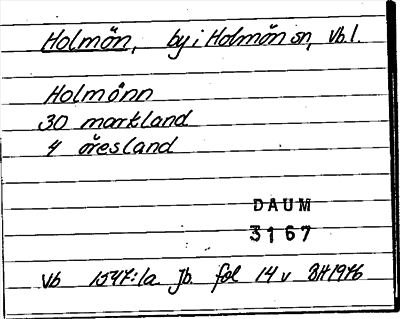 Holmön, by i Holmön sn, Vb.l.
Holmönn
30 markland
4 öresland
DAUM
3167
Vb 1547:1a Jb. fol 14 v BH1976